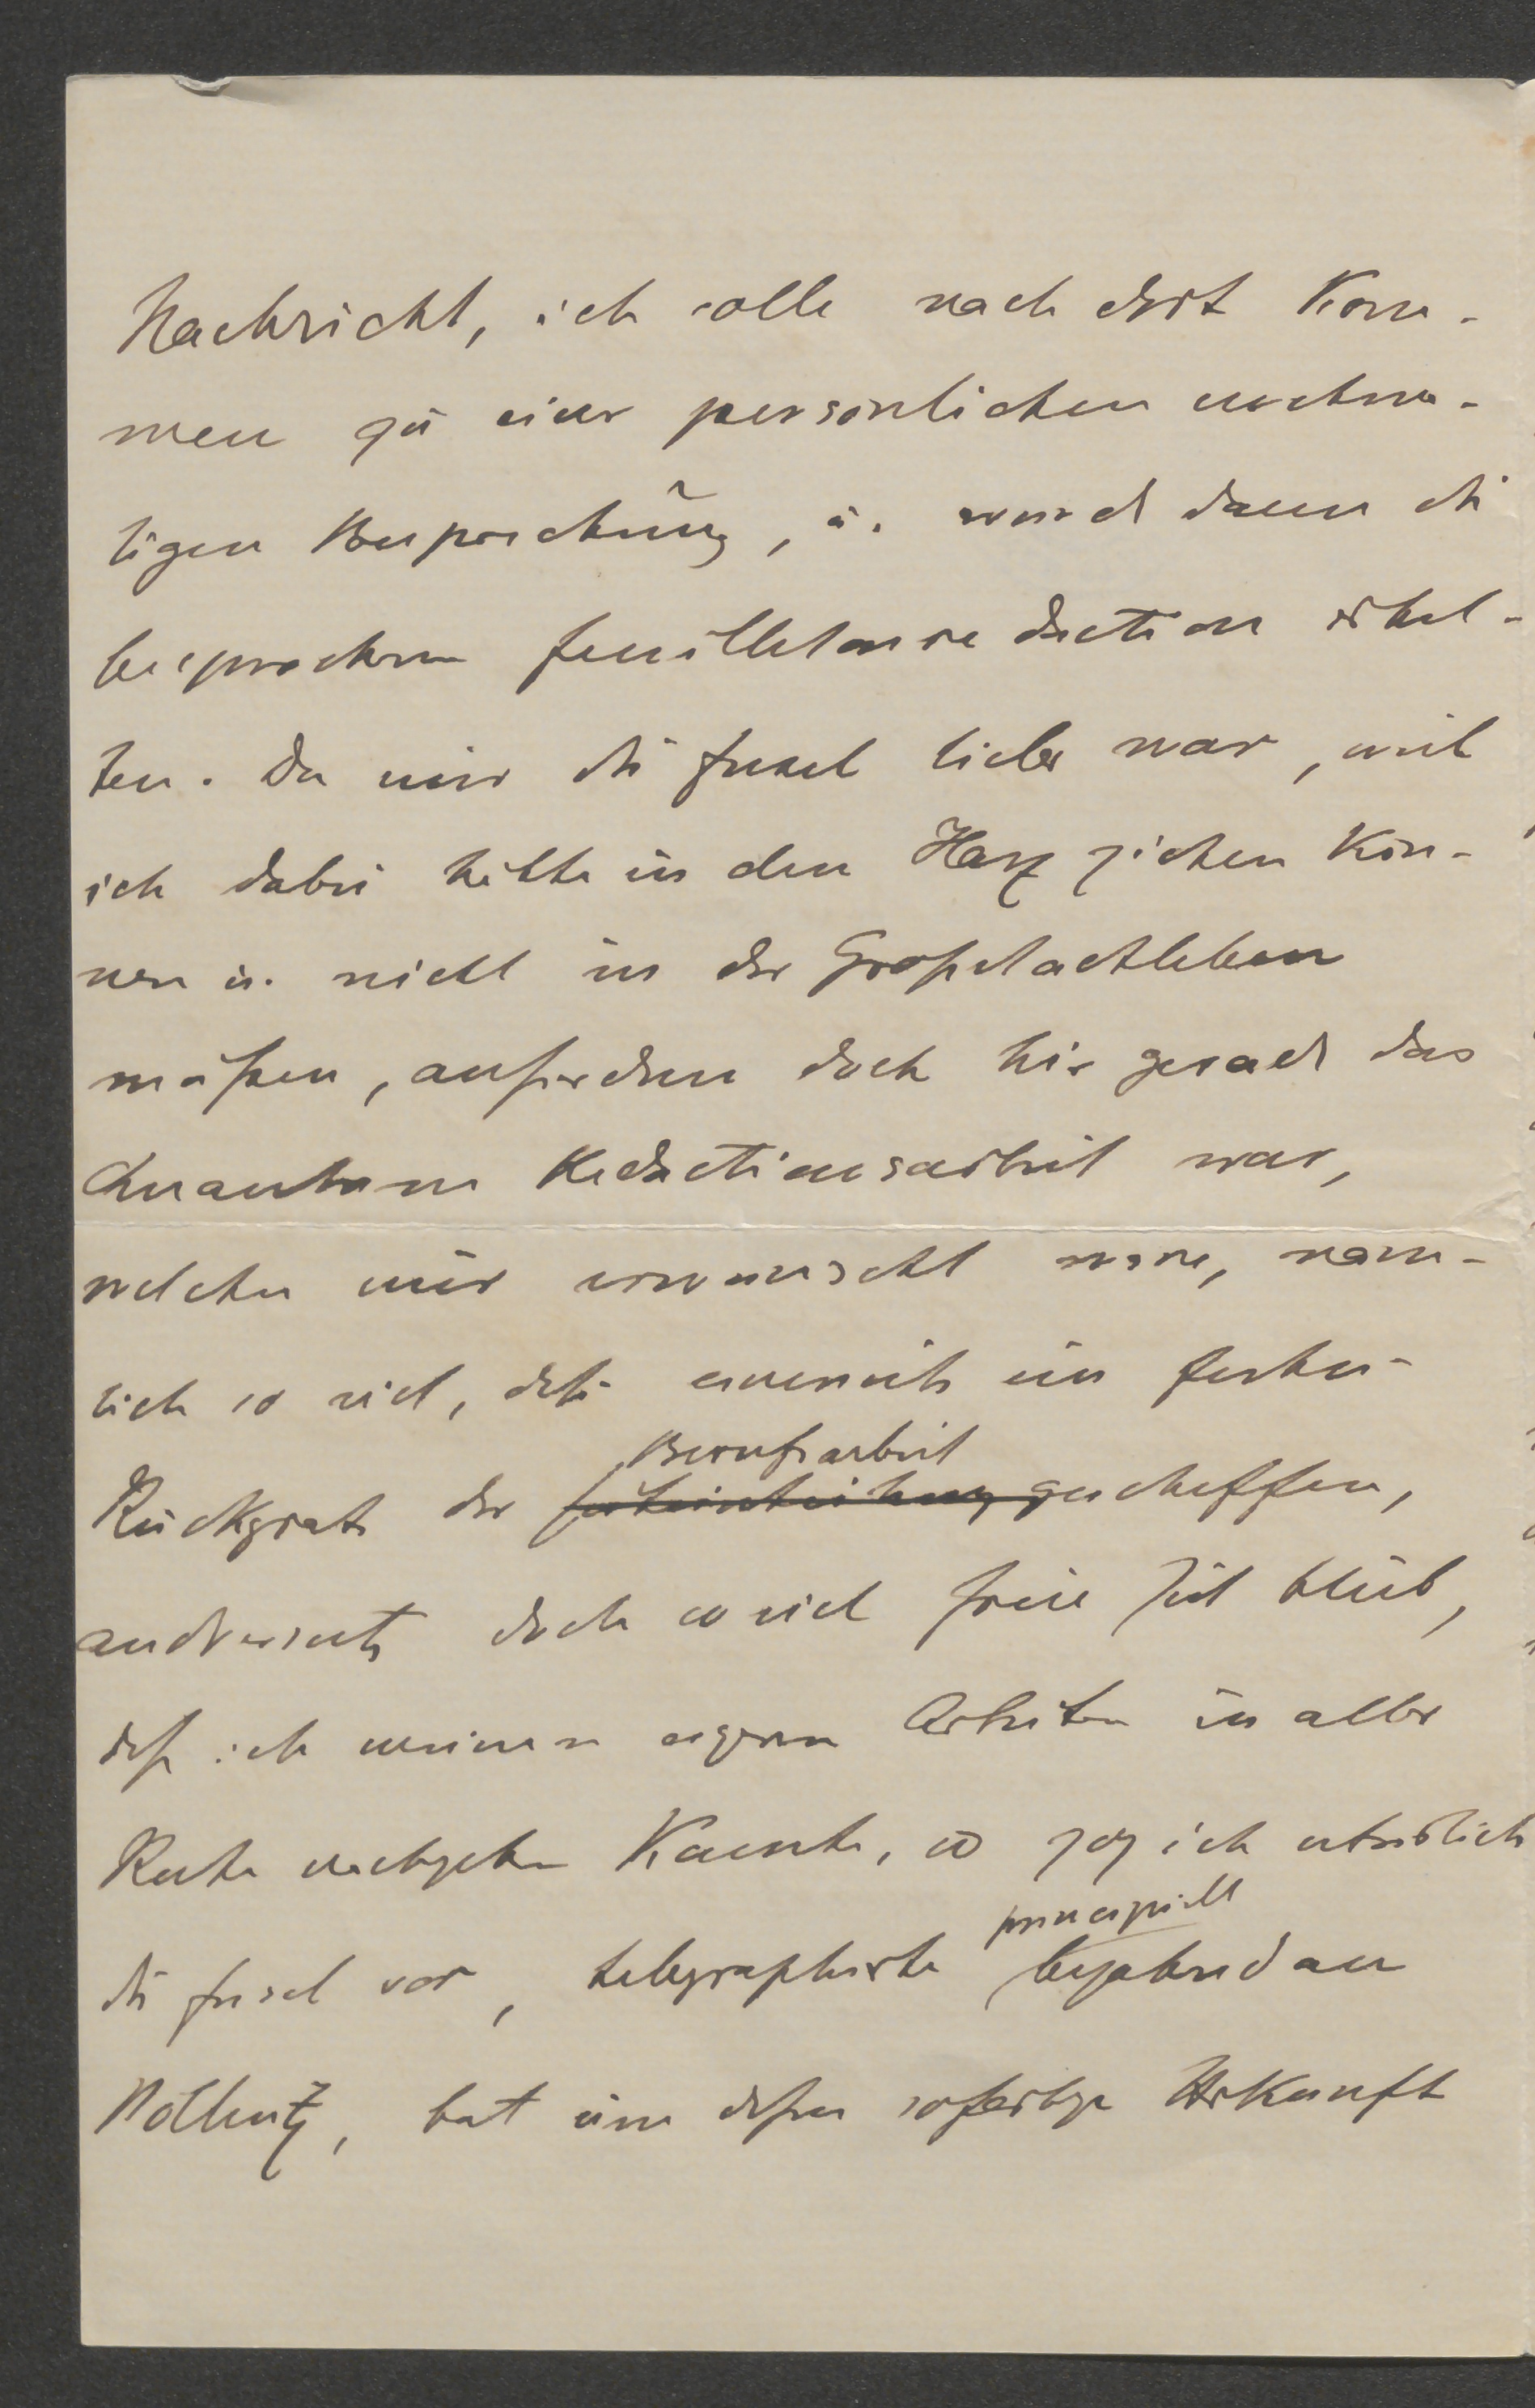 Nachricht, ich solle nach dort kom-
men zu einer persönlichen nochma-
ligen Besprechung, u. würde dann die
besprochene Feuilletonredaction erhal-
ten. Da mir die Insel lieber war, weil
ich dabei hätte in den Harz ziehen kön-
nen u. nicht in der Großstadt leben
müßen, außerdem doch hier gerade das
Quantum Redactionsarbeit war,
welches mir erwünscht wäre, näm-
lich so viel, daß einerseits ein festes
Berufsarbeit
Rückgrat der Zeiteinteilung geschaffen,
anderseits doch so viel freie Zeit blieb,
daß ich meinen eignen Arbeiten in aller
Ruhe nachgehen konnte, so zog ich natürlich
principiell
die Insel vor, telegraphirte bejahend an
bat um deßen sofortige Herkunft